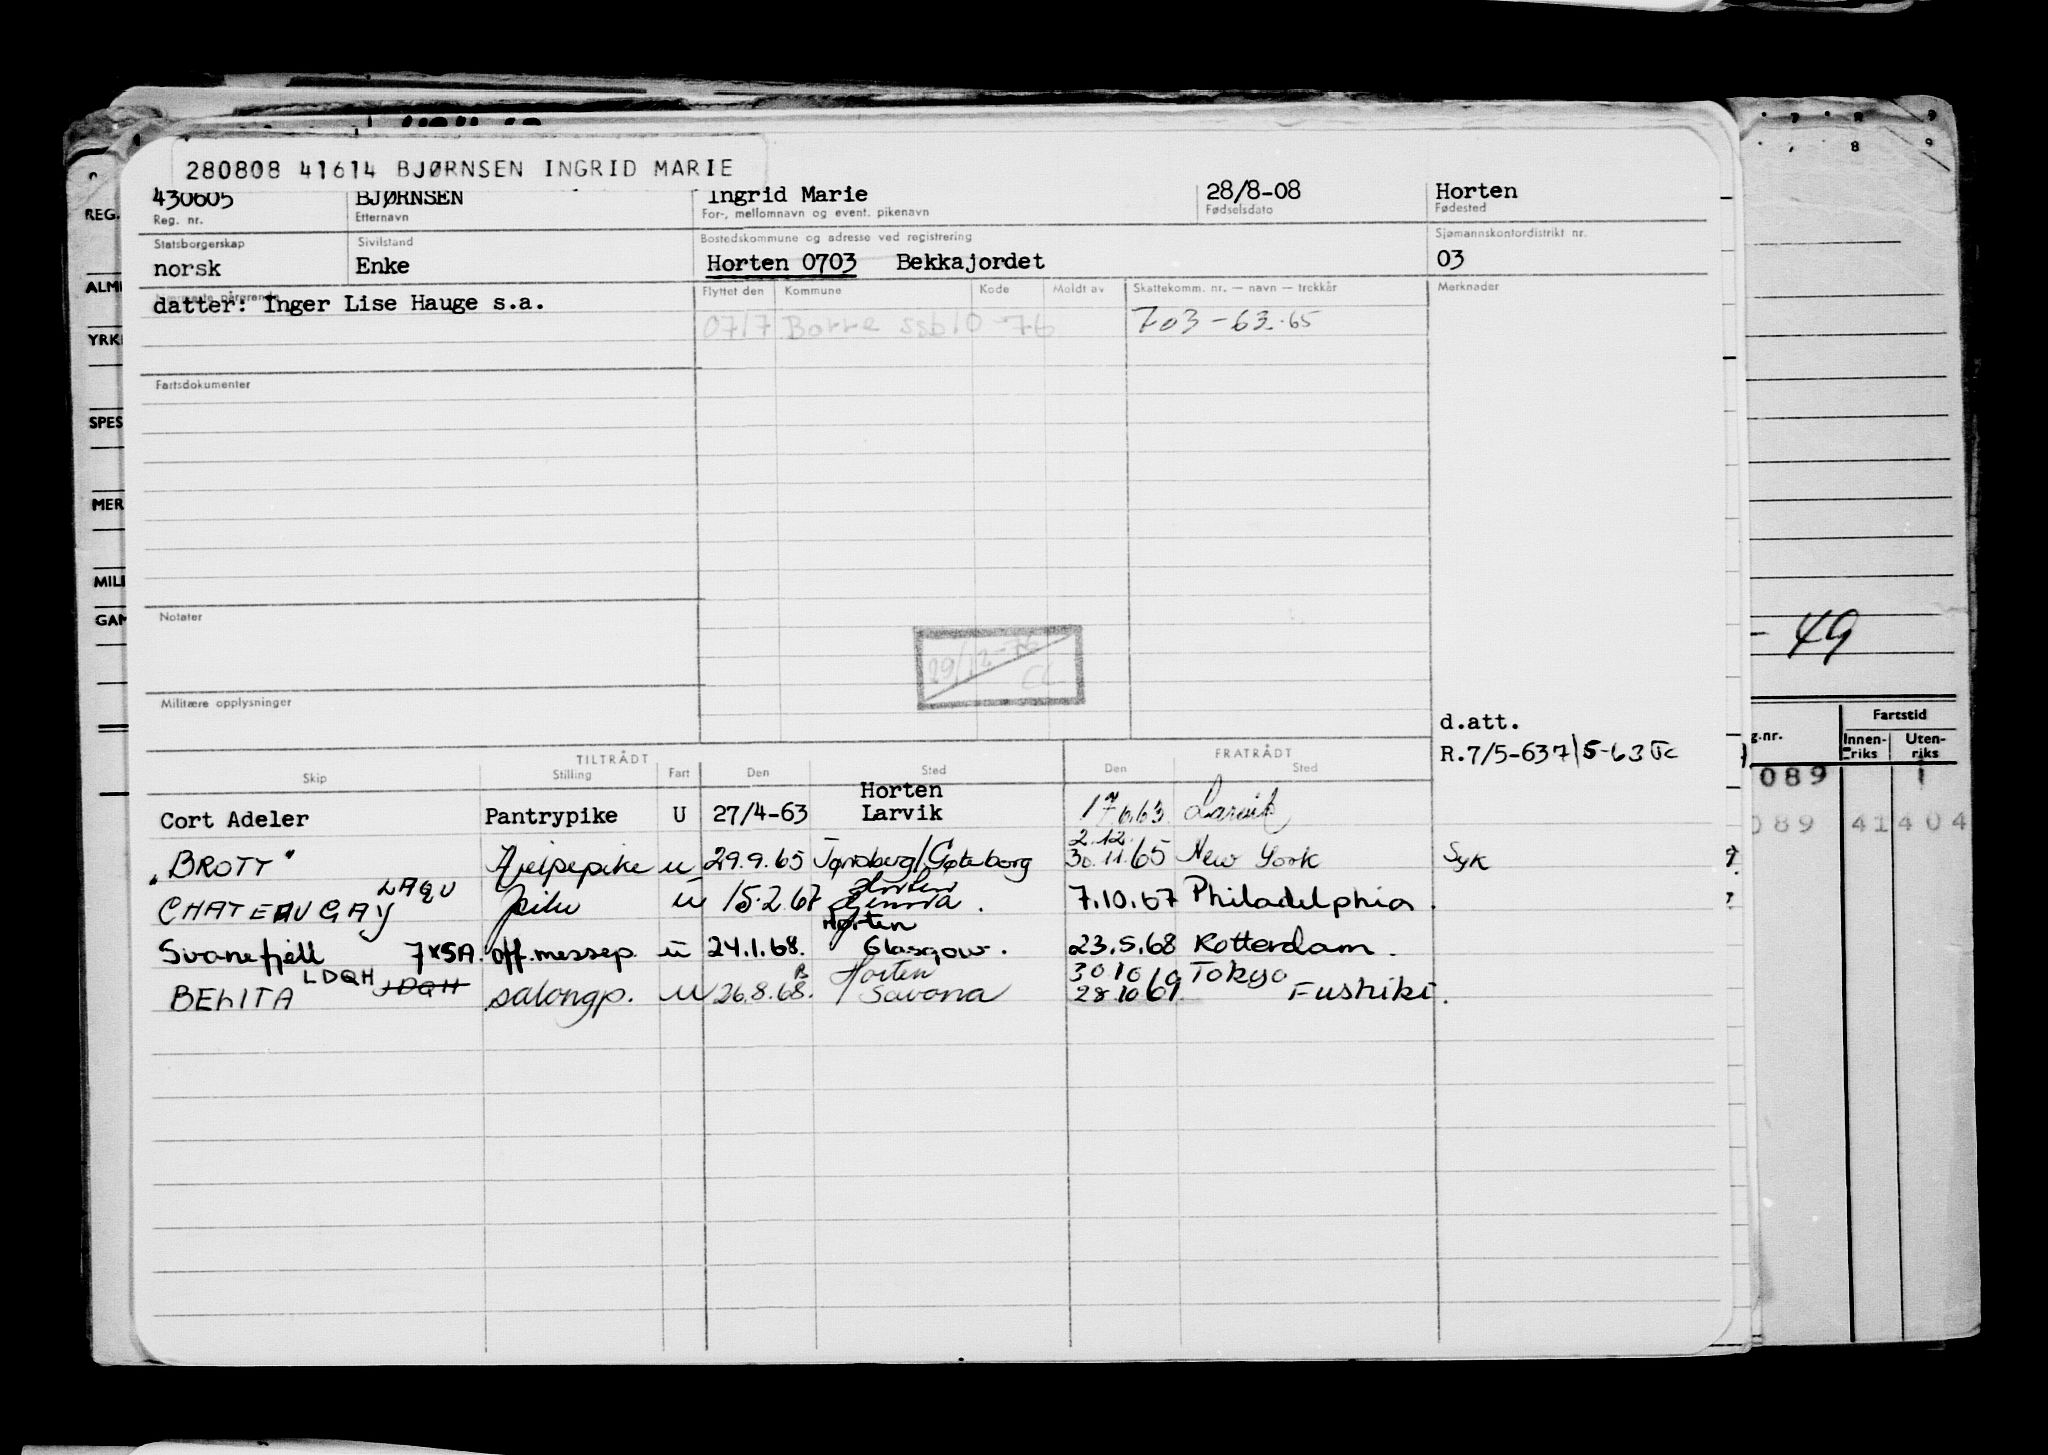 280808 41614 BJØRNSEN INGRID MARIE
430605 BJØRNSEN Ingrid Marie 28/8-08 Horten
Reg. nr. Etternavn For-, mellomnavn og event. pikenavn Fødselsdato Fødested
Statsborgerskap Sivilstand Bostedskommune og adresse ved registrering Sjømannskontordistrikt nr.
norsk Enke Horten 0703 Bekkajordet 03
Nærmeste pårørende Flyttet den Kommune Kode Meldt av Skattekomm. nr. — navn — trekkår Merknader
datter: Inger Lise Hauge s.a.
0717 Borre ssb 10-76 703-63.-65
Fartsdokumenter
Notater
29/12-76
CL
Militære opplysninger
d.att.
R.7/5-63 7/5-63
TILTRÅDT FRATRÅDT
Skip Stilling Fart Den Sted Den Sted
Horten
Cort Adeler Pantrypike U 27/4-63 Larvik 17/6.63 Larvik
2.12.
"BROTT" Hjelpepike u 29.9.65 Tønsberg/Gøteborg 30.11.65 New York Syk
LAQU Horten
CHATEAUGAY pike u 15.2.67 Genova. 7.10.67 Philadelphia.
Horten
Svanefjell 7*SA. off.messep. u 24.1.68. Glasgow. 23.5.68 Rotterdam.
LDQH JDQH Horten 30 10 Tokyo
BELITA salongp. u 26.8.68. Savona 28.10.69. Fushiki.
REG.
YRK
SPES
MER
MIL
- 49
Fartstid
g.nr. Innenriks Utenriks
089 1
089 41404